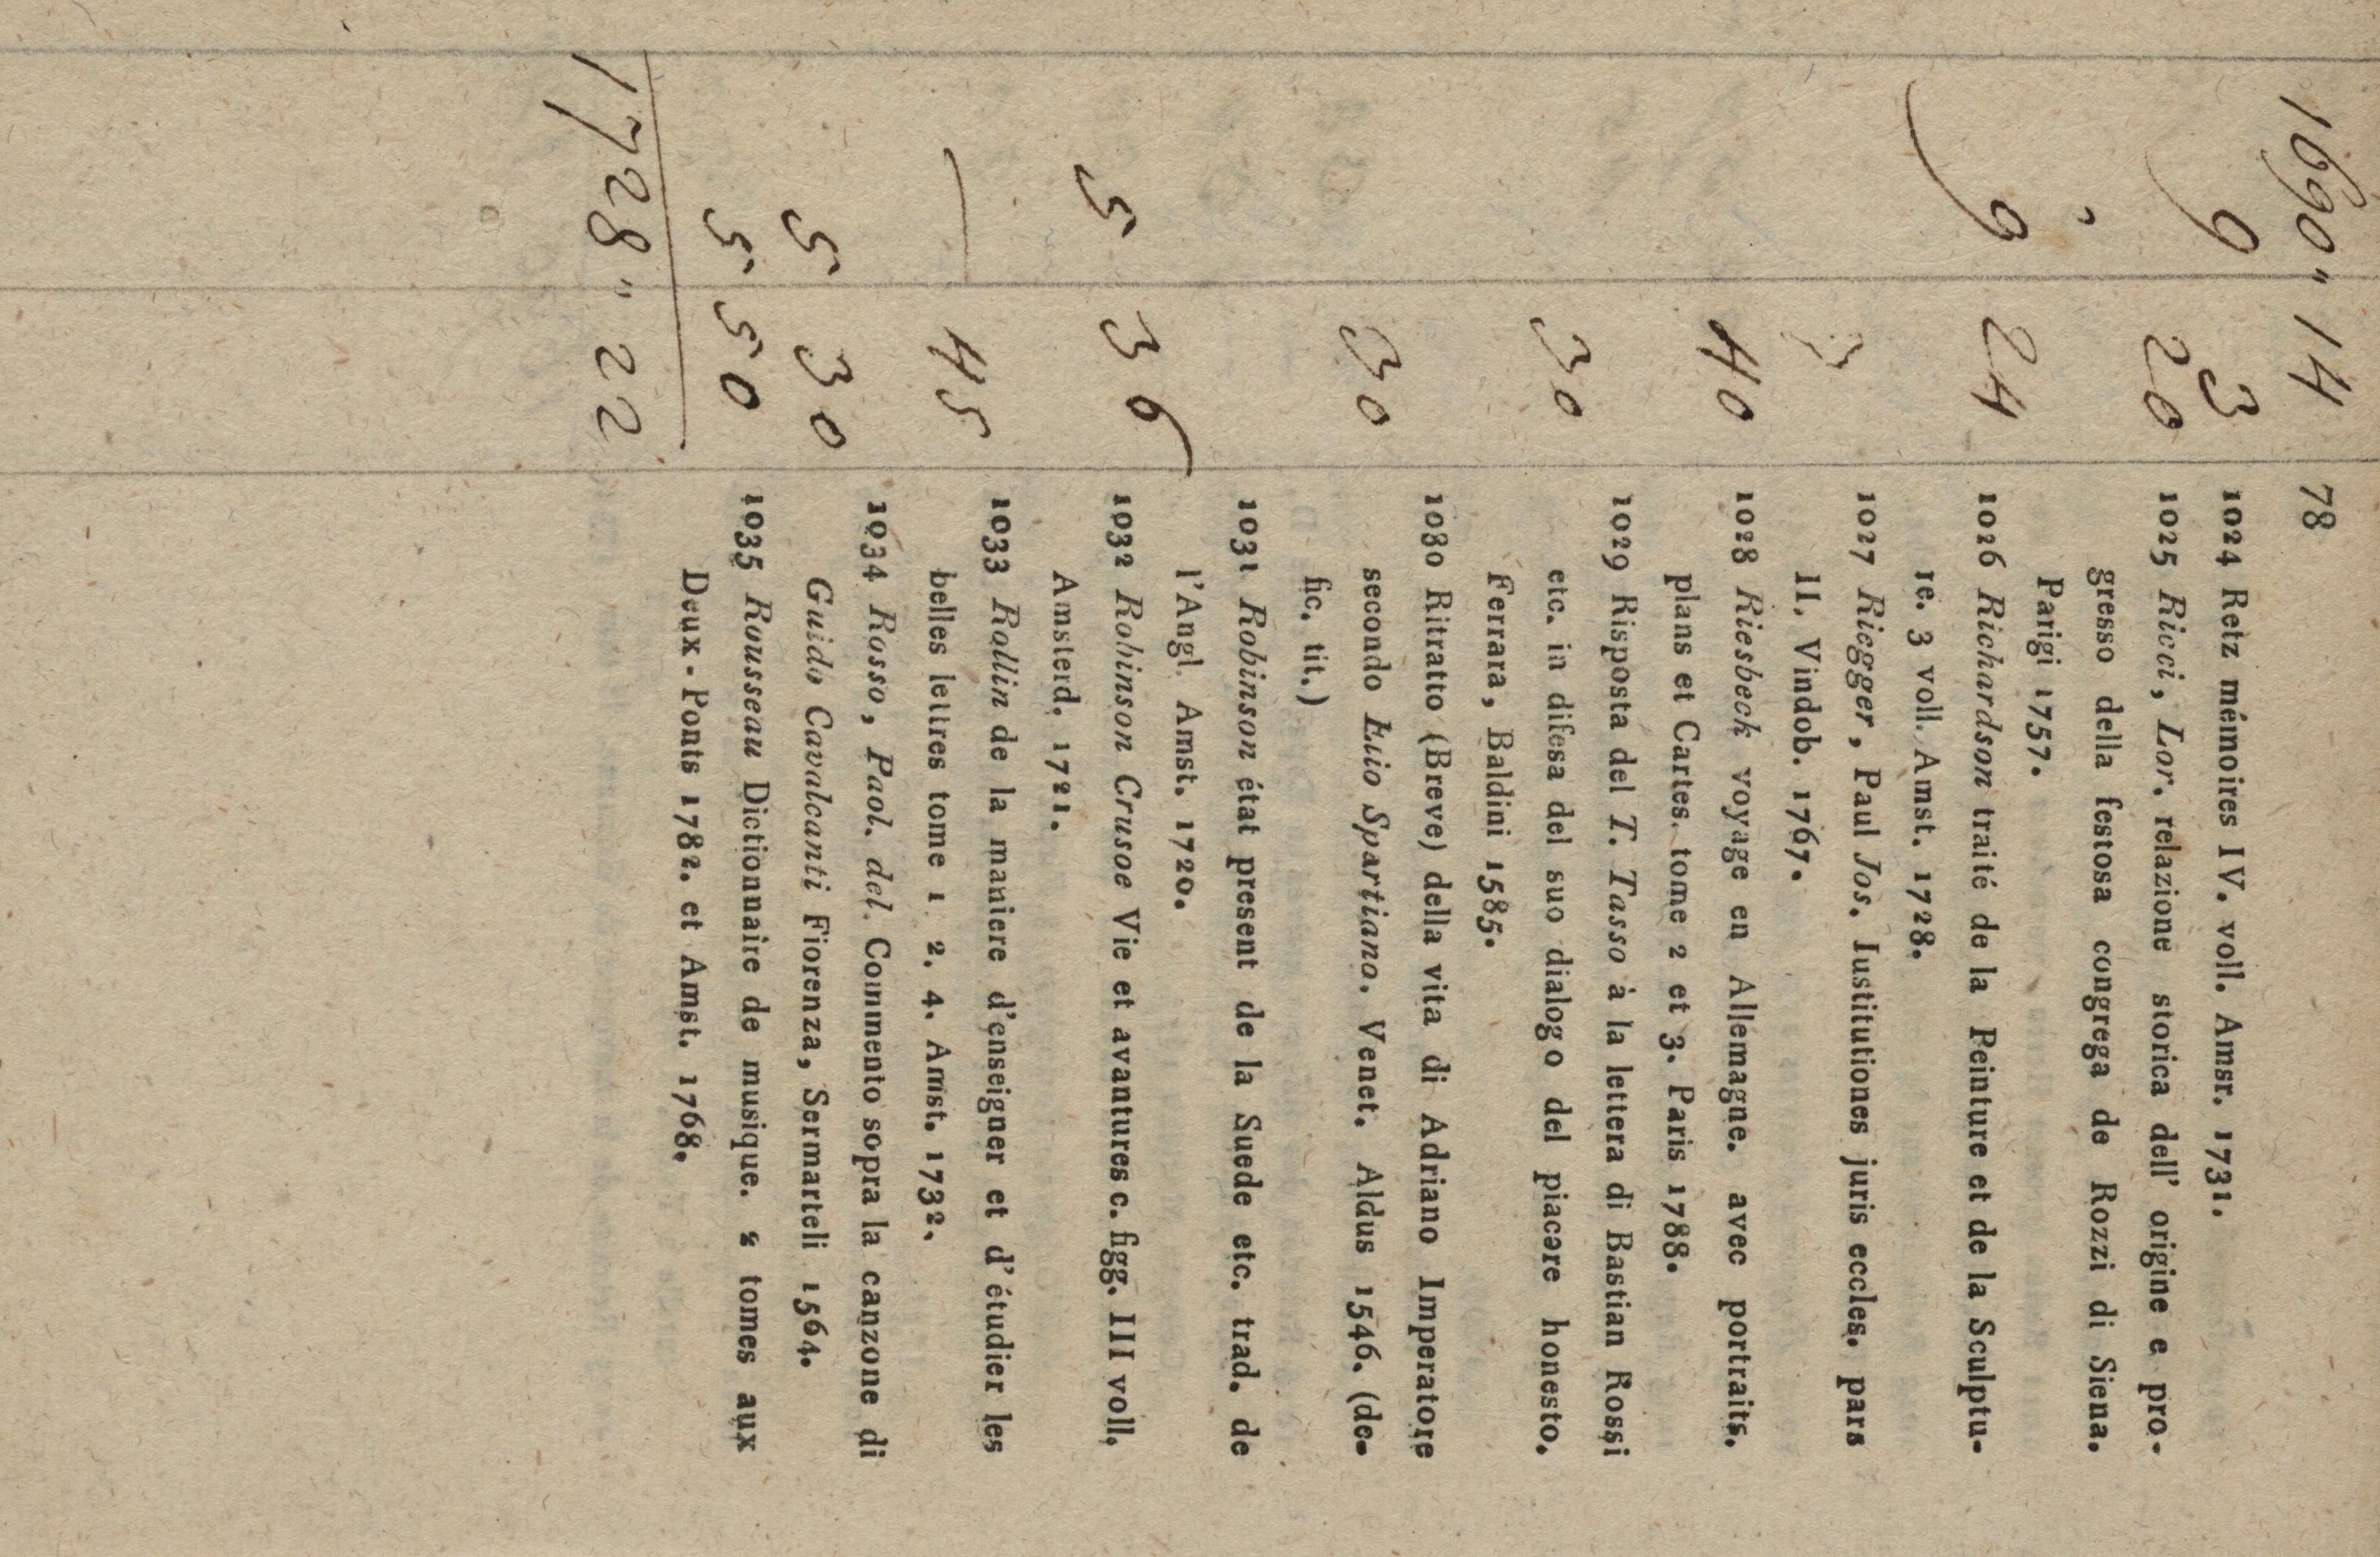 1690 " 14 78
9 3 1024 Retz mémoires IV. voll. Amsr. 1731.
20 1025 Ricci, Lor. relazione storica dell' origine e pro-
gresso della festosa congrega de Rozzi di Siena.
Parigi 1757.
9 24 1026 Richardson traité de la Peinture et de la Sculptu-
re. 3 voll. Amst. 1728.
3 1027 Riegger, Paul Jos. Iustitutiones juris eccles. pars
II. Vindob. 1767.
40 1028 Riesbeck voyage en Allemagne. avec portraits,
plans et Cartes. tome 2 et 3. Paris 1788.
1029 Risposta del T. Tasso à la lettera di Bastian Rossi
30 etc. in difesa del suo dialogo del piacere honesto,
Ferrara, Baldini 1585.
1030 Ritratto (Breve) della vita di Adriano Imperatore
30 secondo Elio Spartiano. Venet. Aldus 1546. (de-
fic. tit.)
1031 Robinson état present de la Suede etc. trad. de
l'Angl. Amst. 1720.
5 36 1032 Robinson Crusoe Vie et avantures c. figg. III voll.
Amsterd. 1721.
1033 Rollin de la maniere d'enseigner et d'étudier les
— 45 belles lettres tome 1 2. 4. Amst. 1732.
1034 Rosso, Paol. del. Commento sopra la canzone di
5 30 Guido Cavalcanti Fiorenza, Sermarteli 1564.
5 50 1035 Rousseau Dictionnaire de musique. 2 tomes aux
Deux-Ponts 1782. et Amst. 1768.
1728 " 22